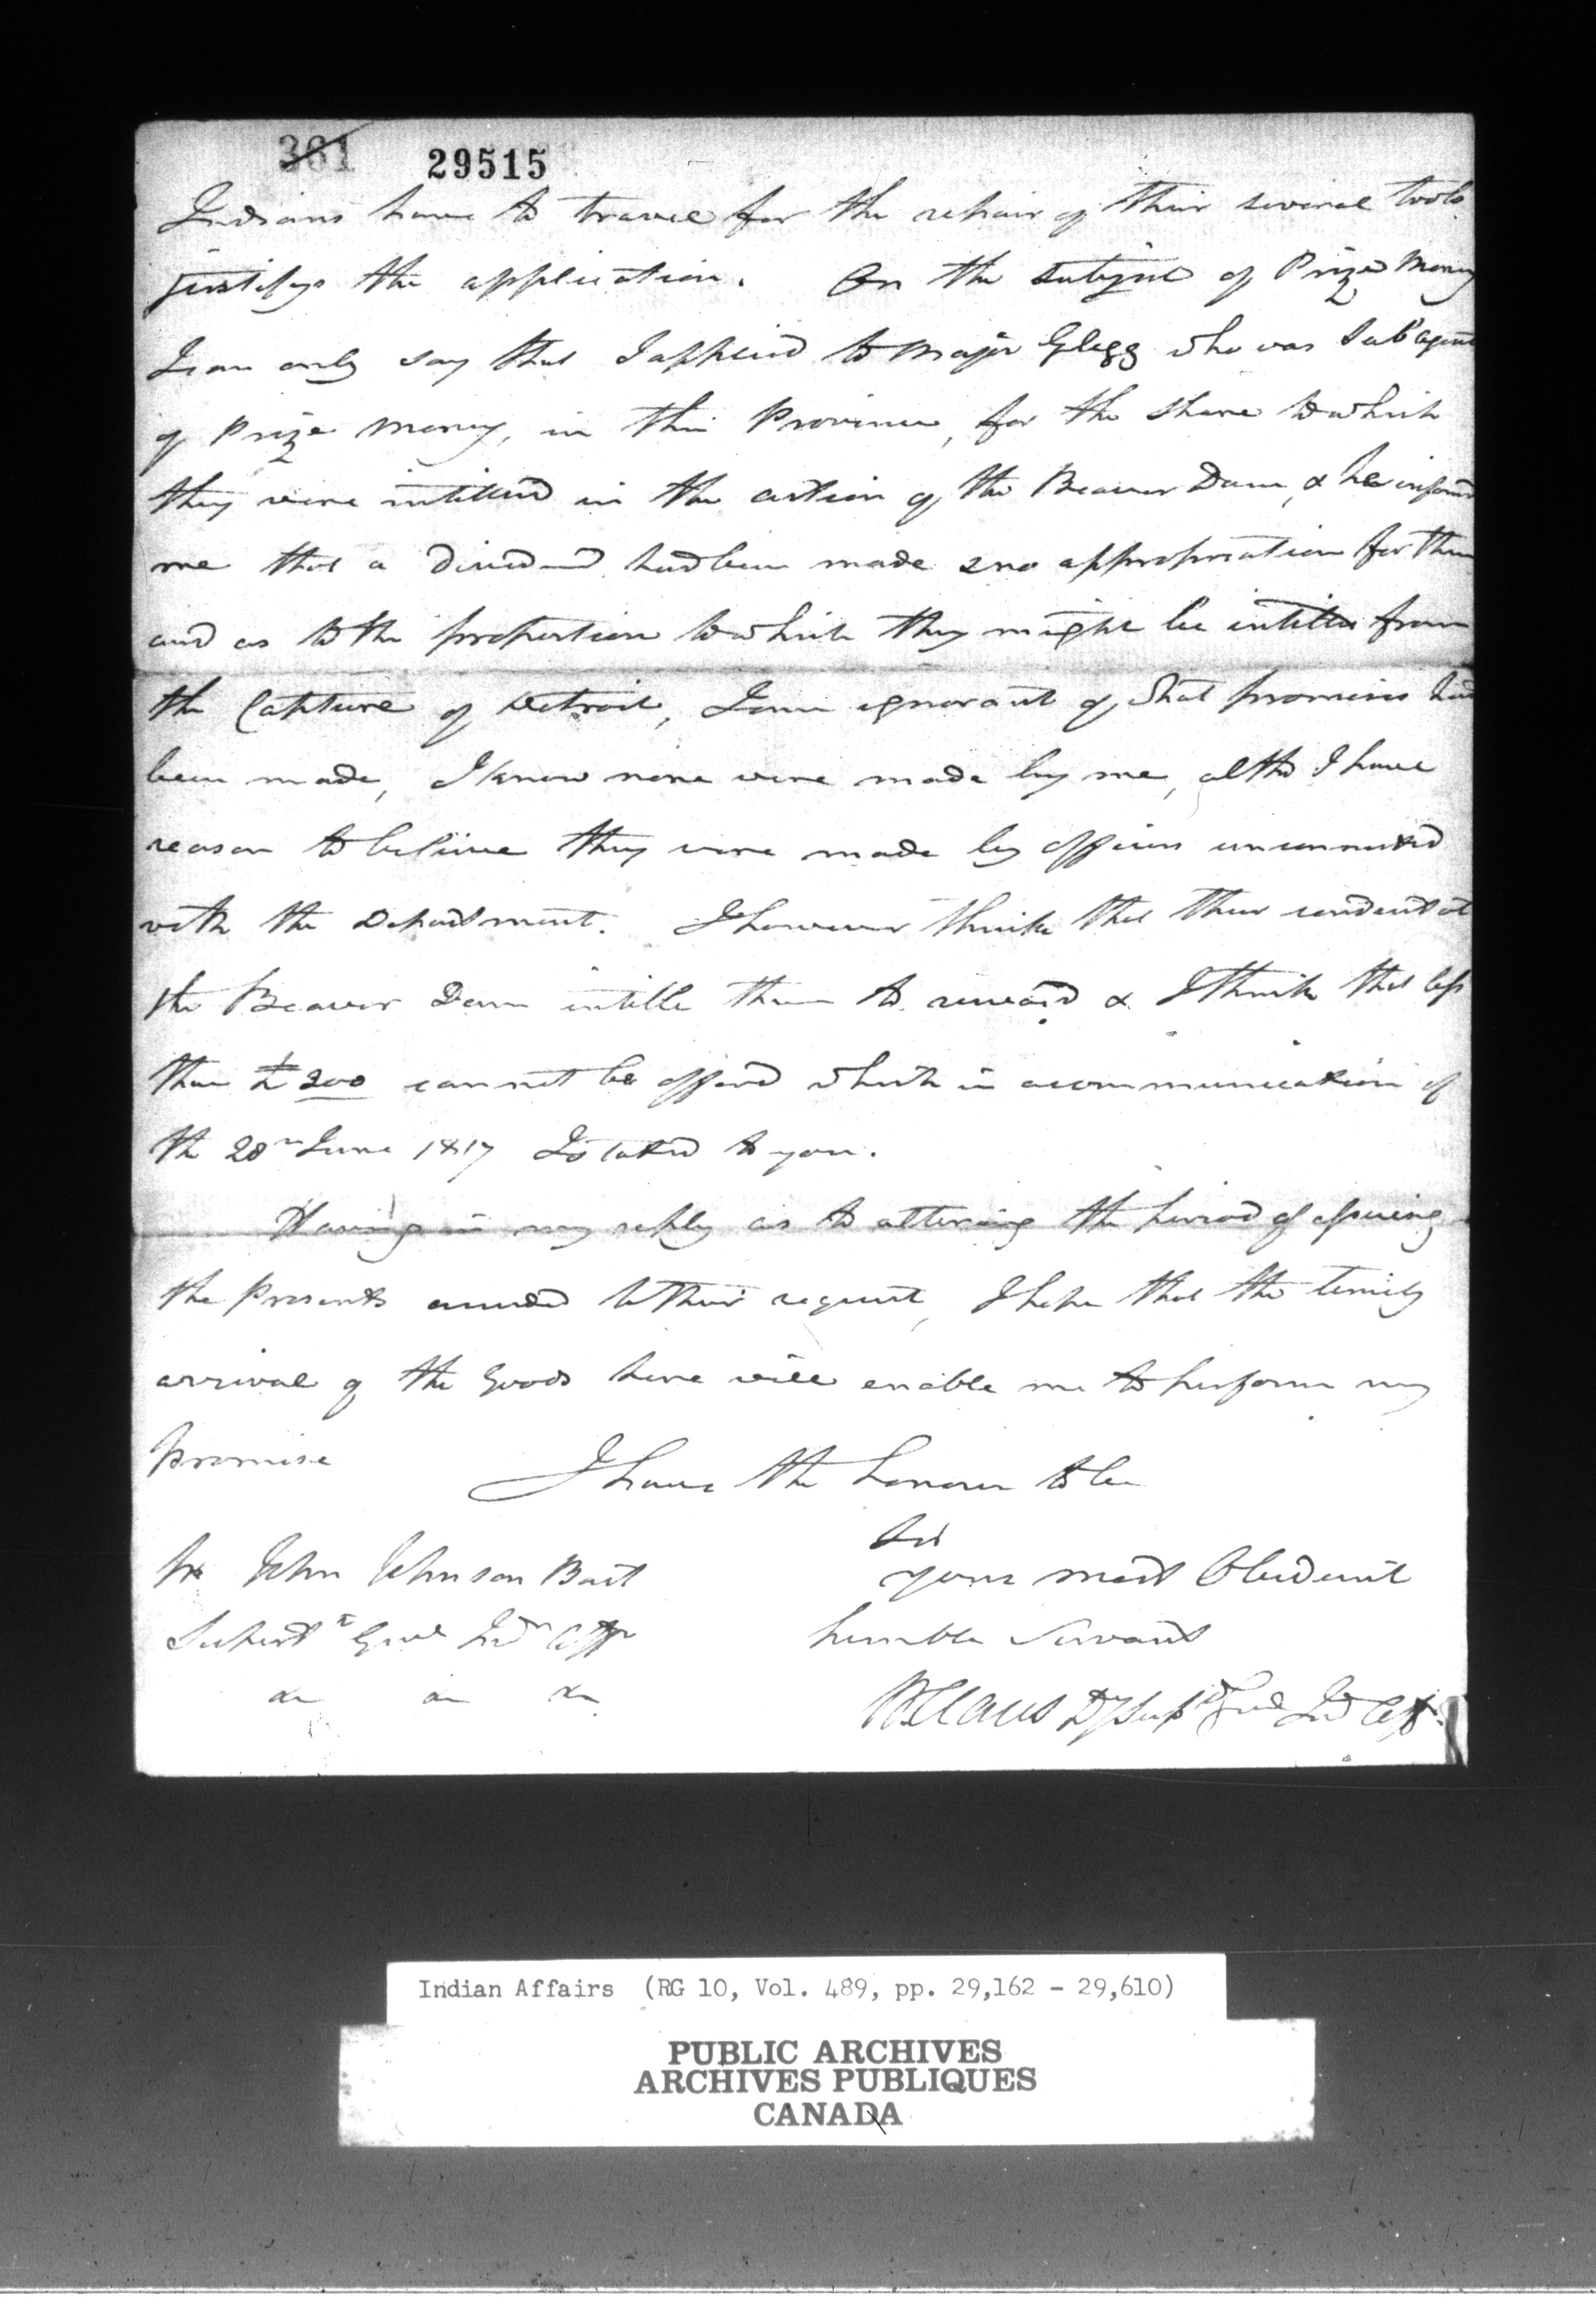 361 29515
Indians have to travel for the repair of their several tools
justifys the application. On the subject of Prize Money
I can only say that I applied to Major Glegg who was Sub agent
of Prize Money, in this Province, for the share to which
they were intitled in the action of the Beaver Dam, & he informd
me that a dividend had been made & no appropriation for them
and as to the proportion to which they might be intitled from
the Capture of Detroit, I am ignorant of what promises had
been made, I know none were made by me, altho I have
reason to believe they were made by officers unconnected
with the Department. I however think that their conduct at
the Beaver Dam intitle them to reward & I think that less
than £200 cannot be offered which in a communication of
the 20th June 1817 I stated to you.
Having in my reply as to altering the period of issuing
the Presents acceded to their request, I hope that the timely
arrival of the Goods here will enable me to perform my
promise
I have the honour to be
Sir
Sir John Johnson Bart
your most Obedient
Supert Genl Ind Affr
humble Servant
&c &c &c
W Claus Dy Supt Genl Ind Affs.
Indian Affairs (RG 10, Vol. 489, pp. 29,162 - 29,610)
PUBLIC ARCHIVES
ARCHIVES PUBLIQUES
CANADA